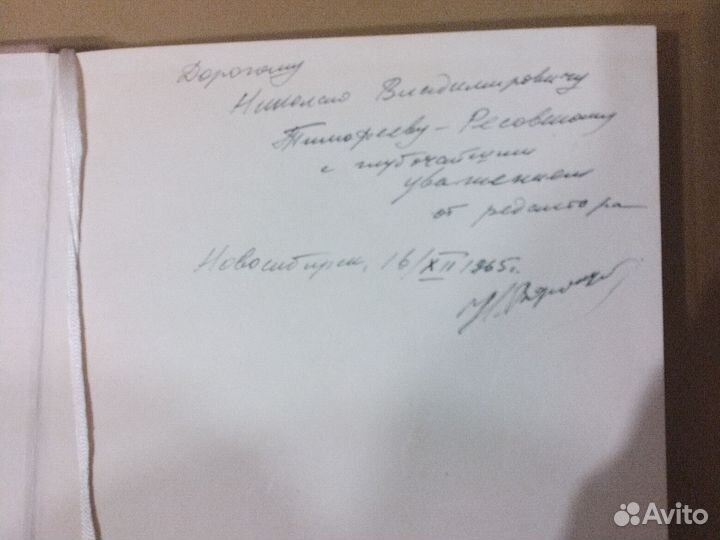 Дорогому
Николаю Владимировичу
Тимофееву-Ресовскому
с глубочайшим
уважением
от редактора
Новосибирск, 16/XII 1965г.
Avito